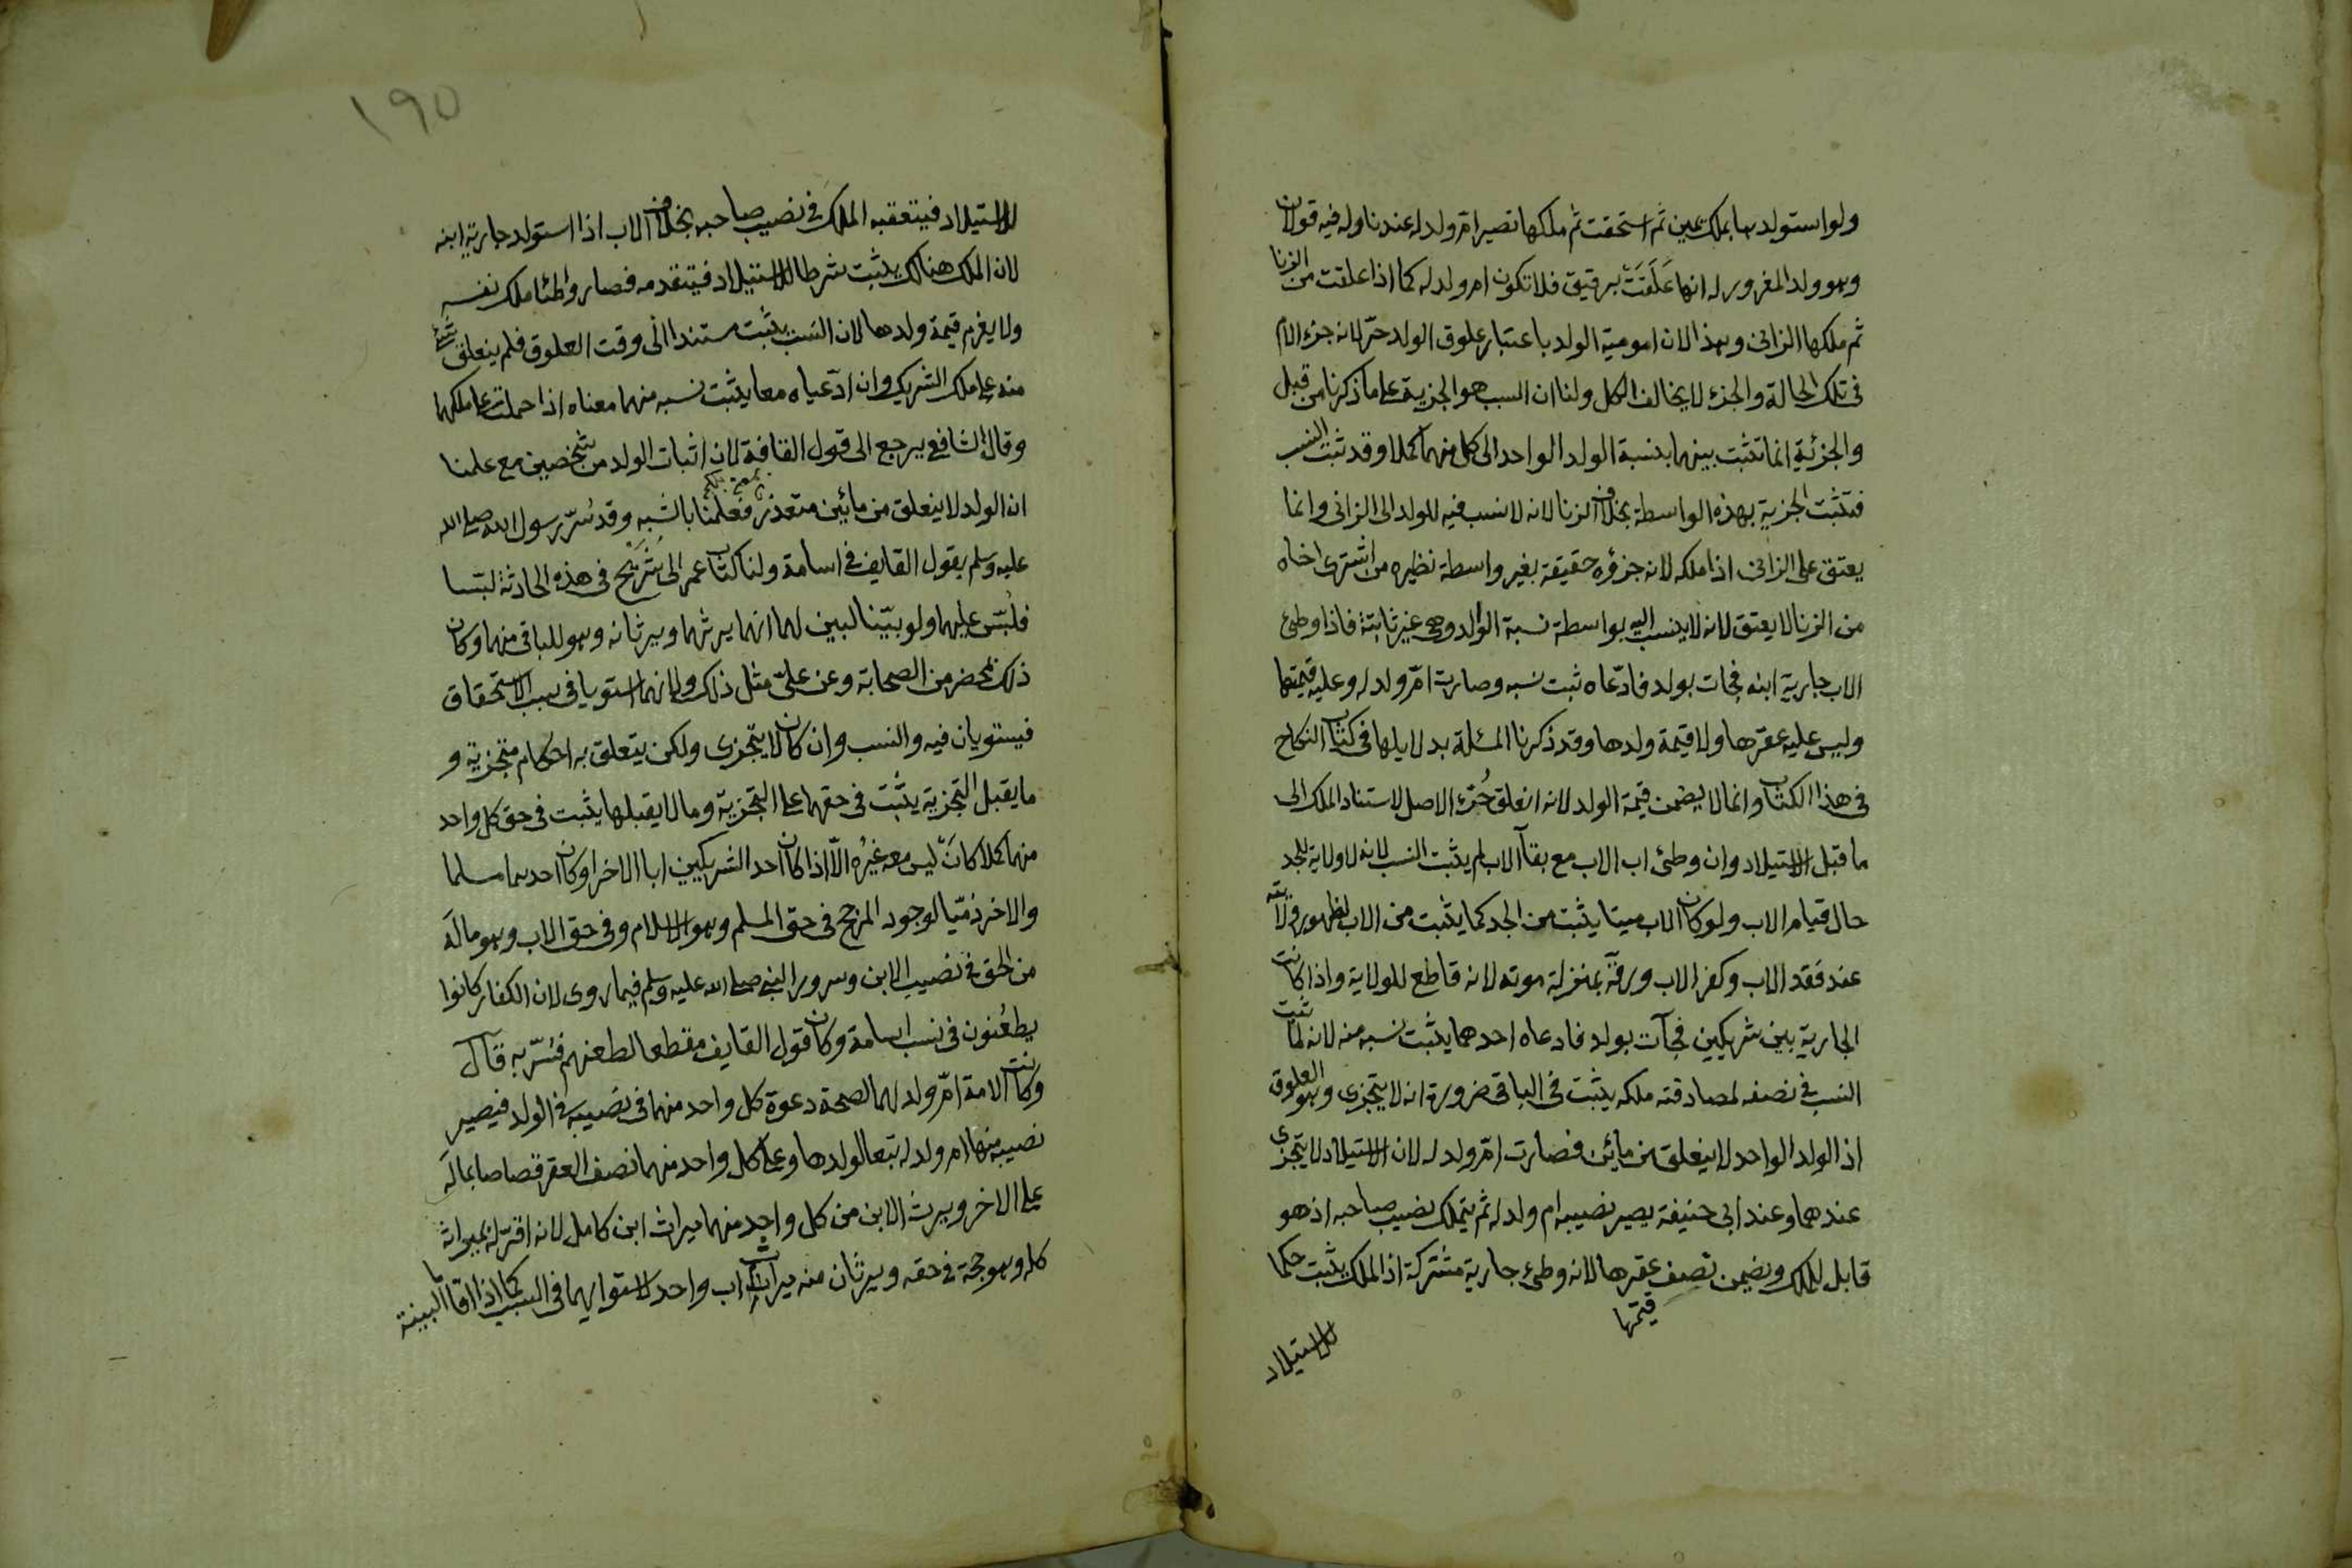 ولو استولدها بملك يمين ثم استحقت ثم ملكها تصير ام ولد له عندنا وله فيه قولان
وهو ولد المغرور له انها عَلَقَتْ برقيق فلا تكون ام ولد له كما اذا علقت من الزنا
ثم ملكها الزاني وهذا لان امومية الولد باعتبار علوق الولد حرّ لانه جزء الام
في تلك الحالة والجزء لا يخالف الكل ولنا ان السبب هو الجزية على ما ذكرنا من قبل
والجزئية انما تثبت بينهما بنسبة الولد الواحد الى كل منهما كملا وقد ثبت النسب
فتثبت الجزية بهذه الواسطة بخلاف الزنا لانه لا نسب فيه للولد الى الزاني وانما
يعتق على الزاني اذا ملكه لانه جزؤه حقيقة بغير واسطة نظيره من اشترى اخاه
من الزنا لا يعتق لانه لا ينسب اليه بواسطة نسبة الوالد وهي غير ثابتة فاذا وطئ
الاب جارية ابنه فجات بولد فادّعاه ثبت نسبه وصارت امّ ولد له وعليه قيمتها
وليس عليه عقرها ولا قيمة ولدها وقد ذكرنا المسئلة بدلايلها في كتاب النكاح
في هذا الكتاب وانما لا يضمن قيمة الولد لانه انعلق حُرّ الاصل لاستناد الملك الى
ما قبل الاستيلاد وان وطئ اب الاب مع بقآ الاب لم يثبت النسب لانه لا ولاية للجد
حال قيام الاب ولو كان الاب ميتا يثبت من الجد كما يثبت من الاب لظهور ولايته
عند فقد الاب وكفر الاب ورقّه بمنزلة موته لانه قاطع للولاية واذا كانت
الجارية بين شريكين فجآت بولد فادعاه احدهما يثبت نسبه منه لانه لما ثبت
النسب في نصفه لمصادفته ملكه يثبت في الباقي ضرورة انه لا يتجزى وهو العلوق
اذ الولد الواحد لا ينعلق من مائين فصارت امّ ولد له لان الاستيلاد لا يتجزى
عندهما وعند ابي حنيفة يصير نصيبه ام ولد له ثم يتملك نصيب صاحبه اذ هو
قابل للملك ويضمن نصف عقرها لانه وطئ جارية مشتركة اذ الملك يثبت حكما
قيمتها
للاستيلاد
١٩٥
للاستيلاد فيتعقبه الملك في نصيب صاحبه بخلاف الاب اذا استولد جارية ابنه
لان الملك هنالك يثبت شرطا للاستيلاد فيتقدمه فصار واطئا ملك نفسه
ولا يغرم قيمة ولدها لان النسب يثبت مستندا الى وقت العلوق فلم ينعلق شئ
منه على ملك الشريك وان ادّعياه معا يثبت نسبه منهما معناه اذا حملت على ملكهما
وقال الشافعي يرجع الى قول القافة لان اثبات الولد من شخصين مع علمنا
ان الولد لا ينعلق من مائين متعذر فعلمنا بالشبه وقد سُرّ رسول الله صلى الله
عليه وسلم بقول القايف في اسامة ولنا كتاب عمر الى شُرَيْح في هذه الحادثة لبّسا
فلُبّس عليهما ولو بيّنا لبين لهما انهما يرثهما ويرثانه وهو للباقي منهما وكان
ذلك بمحضر من الصحابة وعن عليّ مثل ذلك ولانهما استويا في سبب الاستحقاق
فيستويان فيه والنسب وان كان لا يتجزى ولكن يتعلق به احكام متجزية و
ما يقبل التجزية يثبت في حقهما على التجزية وما لا يقبلها يثبت في حق كل واحد
منهما كملا كانّ ليس معه غيره الّا اذا كان احد الشريكين ابا الاخر او كان احدهما مسلما
والاخر ذمّيا لوجود المرجح في حق المسلم وهو الاسلام وفي حق الاب وهو ماله
من الحق في نصيب الابن وسرور النبي صلى الله عليه وسلم فيما روى لان الكفار كانوا
يطعُنون في نسب اسامة وكان قول القايف مقطعا لطعنهم فسُرّ به قال
وكانت الامة امّ ولد لهما لصحة دعوة كل واحد منهما في نصيبه في الولد فيصير
نصيبه منها ام ولد له تبعا لولدها وعلى كل واحد منهما نصف العقر قصاصا بماله
على الاخر ويرث الابن من كل واحد منهما ميراث ابن كامل لانه اقرّ له بميراثه
كله وهو حجة في حقه ويرثان منه ميراث اب واحد لاستوايهما في السبب كما اذا اقاما البينة